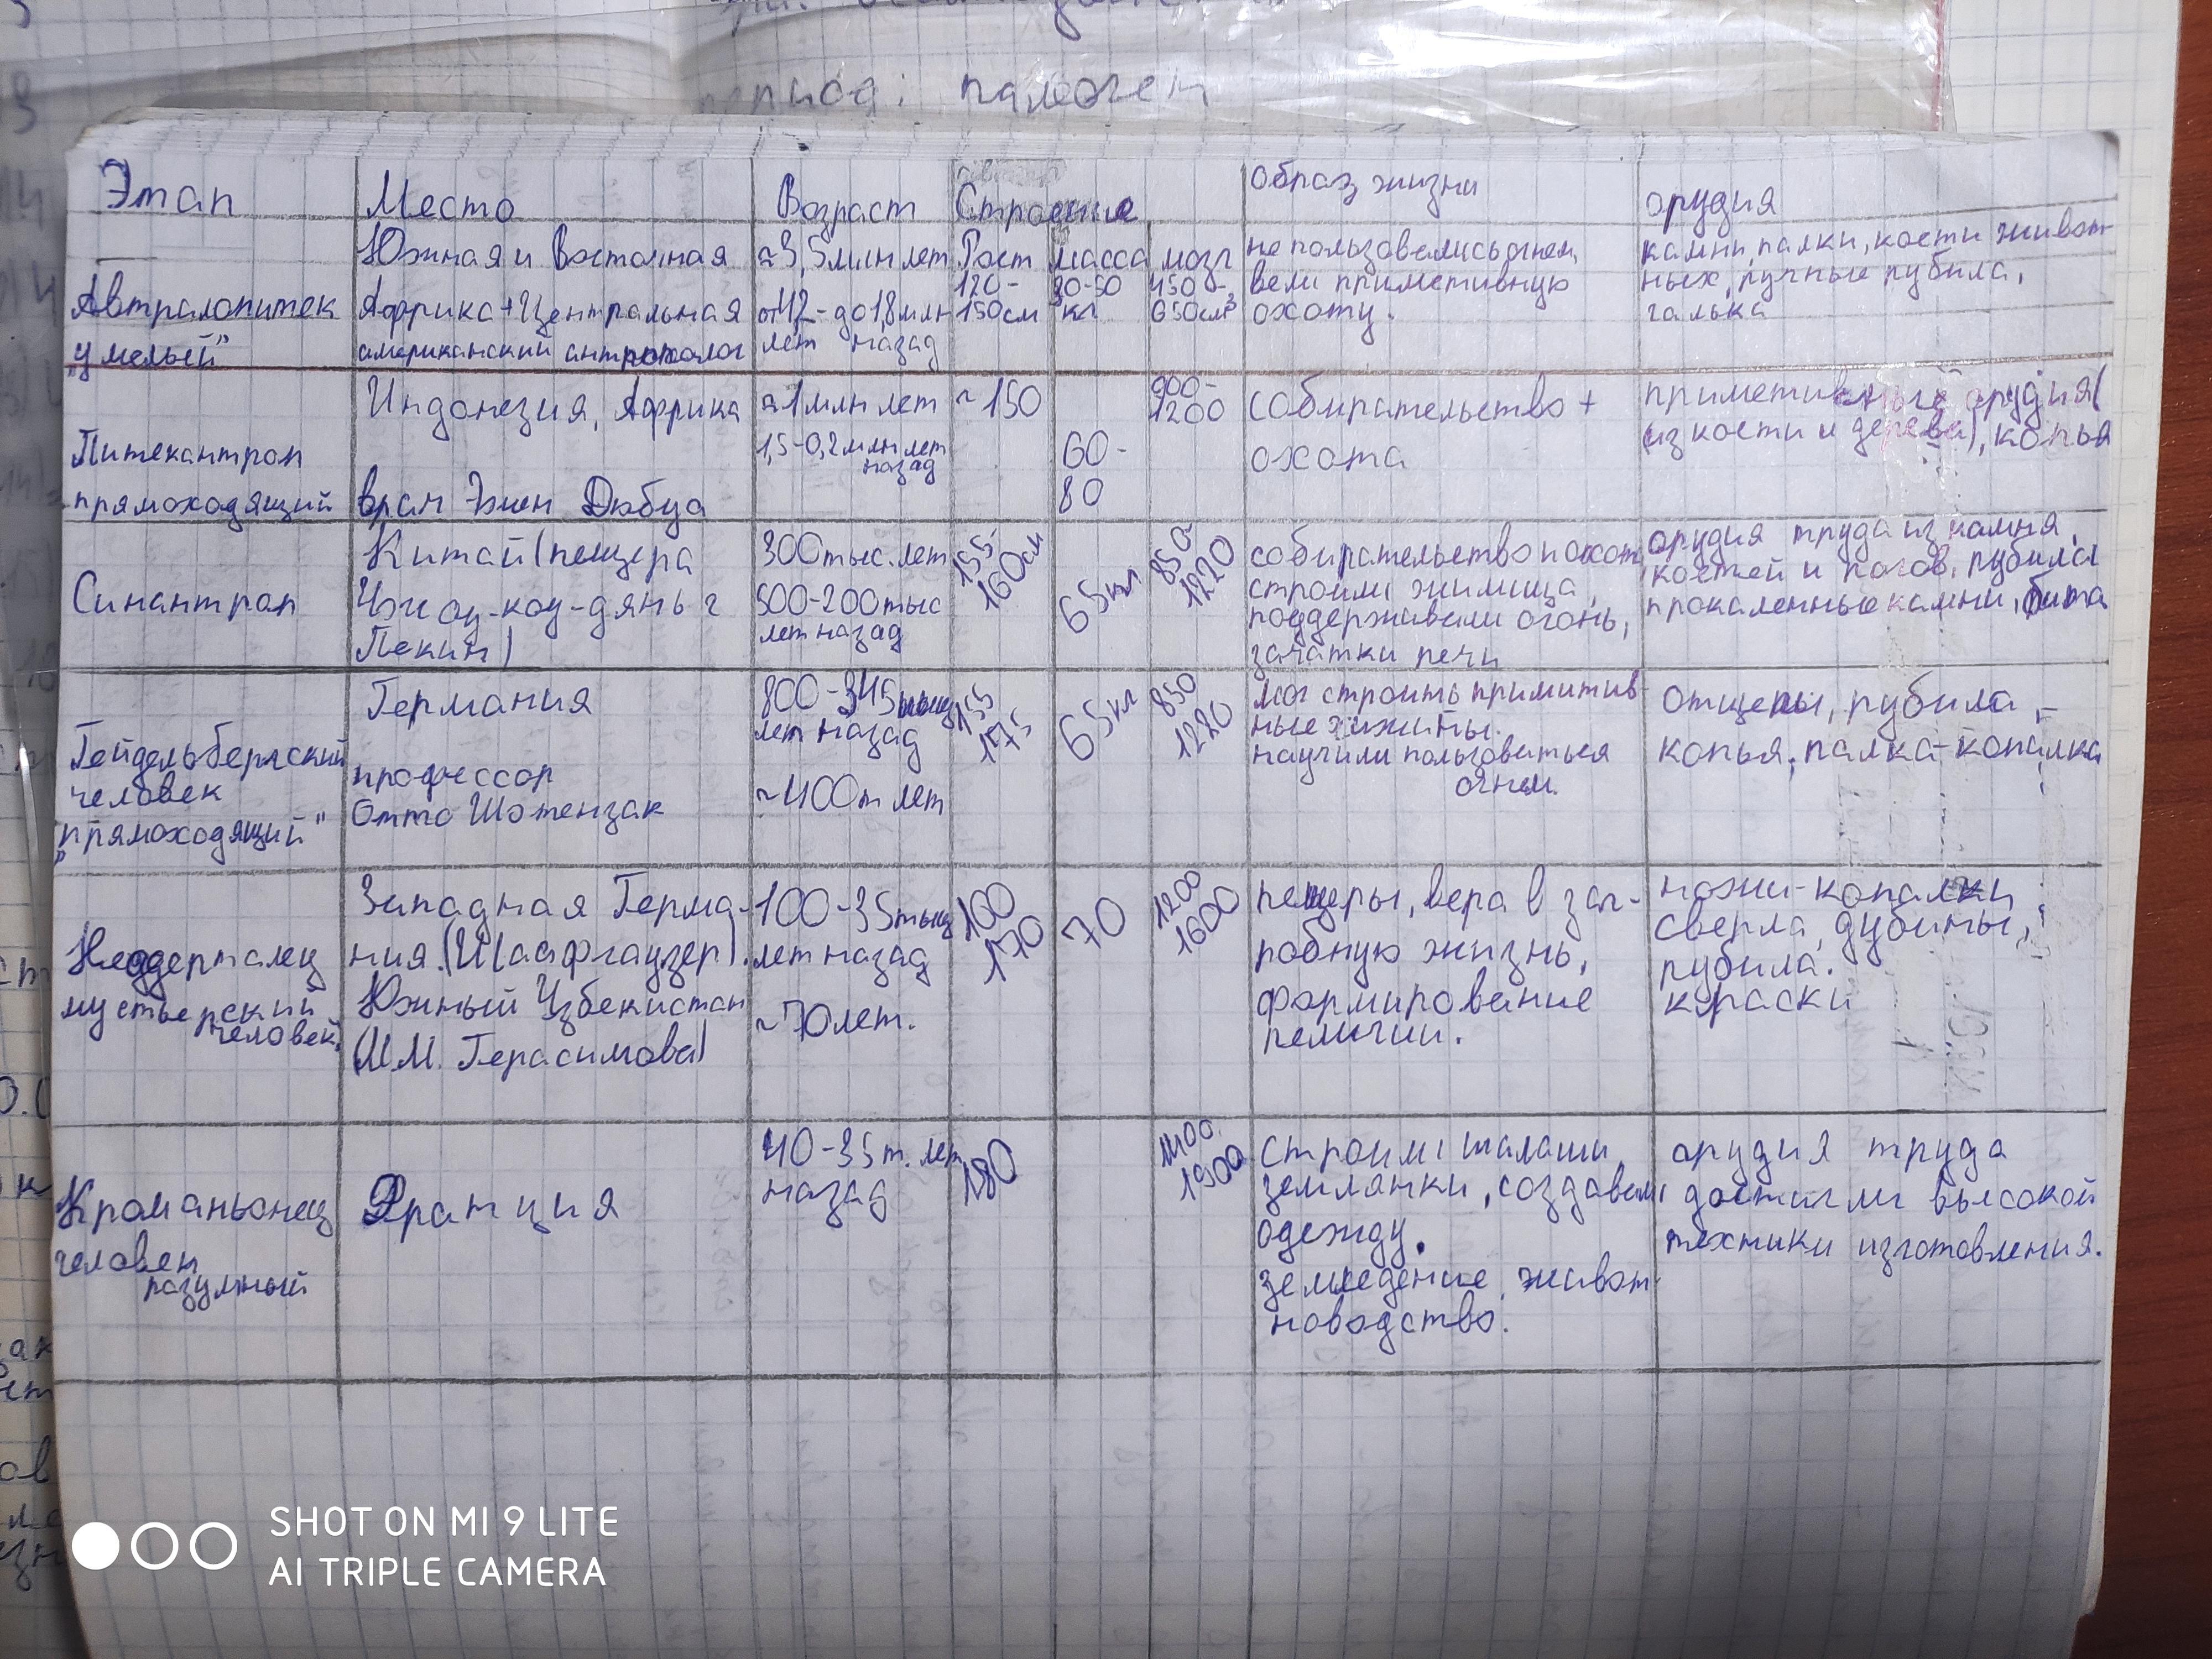 период: палеоген
Этап
Место
Возраст
Строение
образ жизни
орудия
Автралопитек
"умелый"
Южная и Восточная
Африка + Центральная
американский антрополог
≈3,5 млн лет
от 4,2 - до 1,8 млн
лет назад
Рост
120-
150см
масса
30-50
кг
мозг
450-
650см³
не пользовались огнем,
вели приметивную
охоту.
камни, палки, кости живот-
ных, ручные рубила,
галька
Питекантроп
прямоходящий
Индонезия, Африка
врач Эжен Дюбуа
≈1 млн лет
1,5-0,2 млн лет
назад
~150
60-
80
900-
1200
собирательство +
охота
приметивные орудия(
(из кости и дерева), копья
Синантроп
Китай (пещера
Чжоу-коу-дянь г
Пекин)
300 тыс. лет
500-200 тыс
лет назад
155-
160см
65кг
850-
1220
собирательство и охот
строили жилища,
поддерживали огонь,
зачатки речи
орудия труда из камня,
костей и рогов, рубила
прокаленные камни, бита
Гейдельбергский
человек
"прямоходящий"
Германия
профессор
Отто Шэтензак
800-345 тыщ
лет назад
~400т лет
155
175
65кг
850
1220
мог строить примитив-
ные хижины.
научили пользоваться
огнем.
отщепы, рубила,-
копья, палка-копалка
Неддерталец
мустьерский
человек.
Западная Герма-
ния.(Шаафгаузер).
Южный Узбекистан
(М.М. Герасимова)
100-35 тыщ
лет назад
~70лет.
100
170
70
1200
1600
пещеры, вера в заг-
робную жизнь,
формирование
релиGии.
ножи-копалки
сверла, дубины,
рубила.
краски
Кроманьонец
человек
разумный
Франция
40-35т. лет
назад
180
1400.
1900
строили шалаши,
землянки, создавали
одежду.
земледение, живот-
новодство.
орудия труда
достигли высокой
техники изготовления.
SHOT ON MI 9 LITE
AI TRIPLE CAMERA